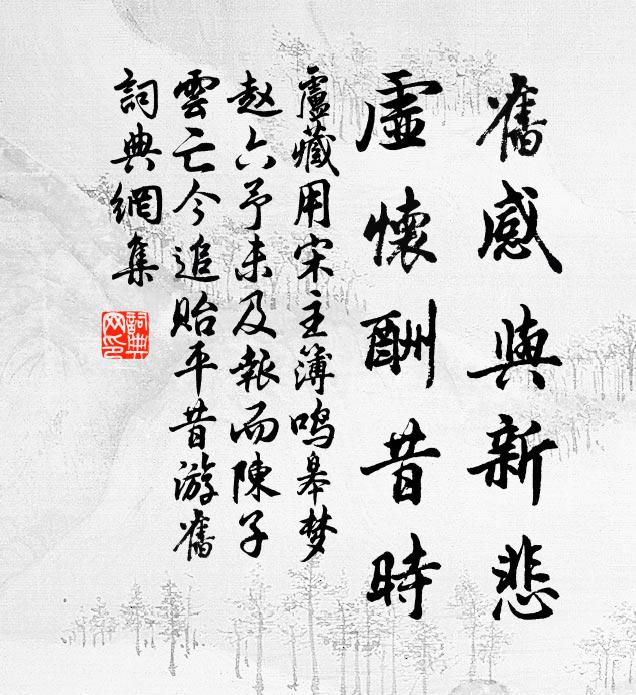 舊感與新悲
虛懷酬昔時
盧藏用宋主簿鸣皋梦
赵六予未及報而陳子
雲亡今追贻平昔游舊
詞典網集
詞典
网印